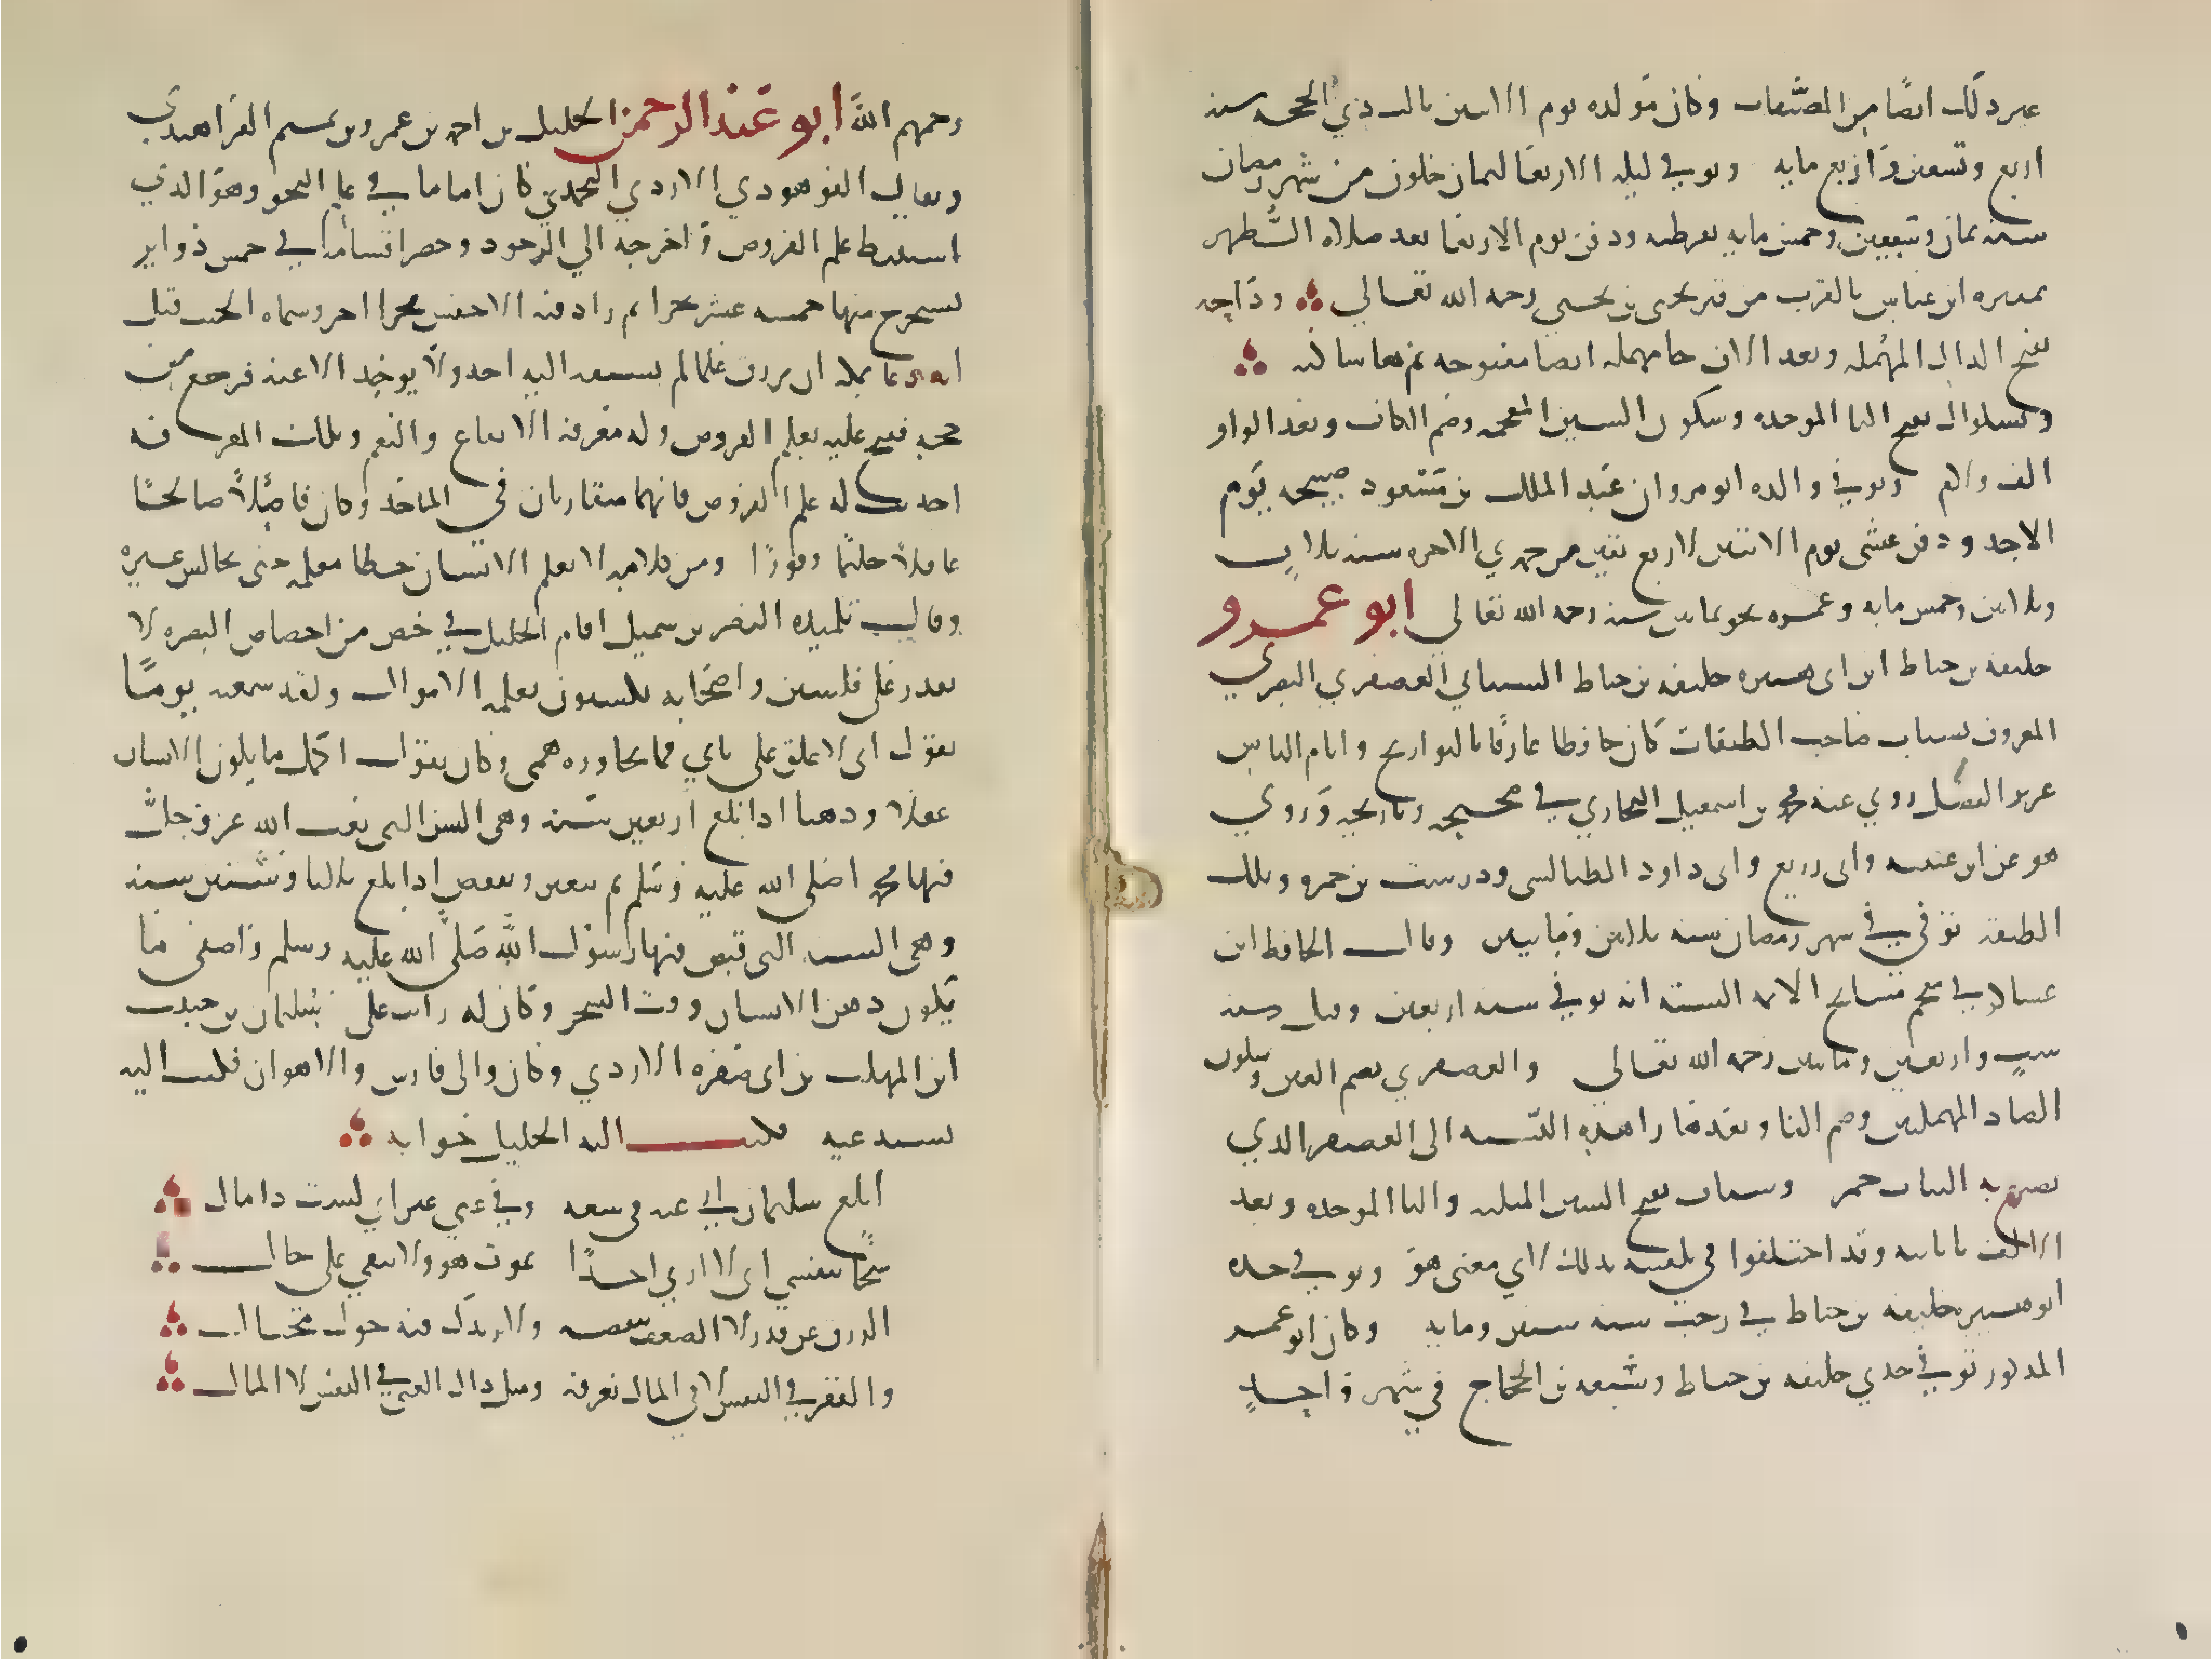 غير ذلك ايضًا من المصنفات وكان مولده يوم الاثنين ثالث ذي الحجه سنه
اربع وتسعين واربع مايه وتوفي ليله الاربعا لثمان خلون من شهر رمضان
سنه ثمان وسبعين وخمس مايه بقرطبه ودفن يوم الاربعا بعد صلاه الظهر
بمقبره ابن عباس بالقرب من قبر يحيى بن يحيى رحمه الله تعالي وداحه
بفتح الدال المهمله وبعد الالف حا مهمله ايضا مفتوحه ثم ها ساكنه
وبشكوال بفتح البا الموحده وسكون الشين المعجمه وضم الكاف وبعد الواو
الف ولام وتوفي والده ابو مروان عبد الملك بن مسعود صبيحه يوم
الاحد ودفن عشى يوم الاثنين لاربع بقين من جمدي الاخره سنه ثلاث
وثلاثين وخمس مايه وعمره نحو ثمانين سنه رحمه الله تعالي ابو عمرو
خليفه بن خياط ابن ابى هبيره خليفه بن خياط الشيباني العصفري البصري
المعروف بشباب صاحب الطبقات كان حافظا عارفًا بالتواريخ وايام الناس
غزير الفضل روي عنه محمد بن اسمعيل البخاري في صحيحه وتاريخه وروي
هو عن ابن عيينه وابى داود الطيالسى ودرست بن حمزه وتلك
الطبقه توفي في شهر رمضان سنه ثلاثين ومايتين وقال الحافظ ابن
عساكر في معجم مشايخ الايمه السته انه توفي سنه اربعين وقيل سنه
ست واربعين ومايتين رحمه الله تعالي والعصفري بضم العين وسكون
الصاد المهملتين وضم الفا وبعدها را هذه النسبه الى العصفر الذي
يصبغ به الثياب حمر وشباب بفتح الشين المثلثه والبا الموحده وبعد
الالف با ثانيه وقد اختلفوا في تلقيبه بذلك لاي معنى هو وتوفي جده
ابو هبيره خليفه بن خياط في رجب سنه ستين ومايه وكان ابو عمرو
المذكور توفي جدي خليفه بن خياط وشعبه بن الحجاج في شهر واحد
رحمهم الله ابو عبد الرحمن الخليل بن احمد بن عمرو بن تميم الفراهيدي
ويقال الفرهودي الازدي اليحمدي كان اماما في علم النحو وهو الذي
استنبط علم العروض واخرجه الي الوجود وحصر اقسامه في خمس دواير
يستخرج منها خمسه عشر بحرا ثم زاد فيه الاخفش بحرا اخر وسماه الخبب قيل
انه دعا بمكه ان يرزق علما لم يسبقه اليه احد ولا يوخذ الا عنه فرجع من
حجه ففتح عليه بعلم العروض وله معرفه الايقاع والنغم وتلك المعرفه
احدثت له علم العروض فانهما متقاربان في الماخذ وكان فاضلاً صالحًا
عاقلاً حليمًا وقورًا ومن كلامه لا يعلم الانسان خطا معلمه حتى يجالس غيره
وقال تلميذه النضر بن شميل اقام الخليل في خص من اخصاص البصره لا
يقدر على فلسين واصحابه يكسبون بعلمه الاموال ولقد سمعته يومًا
يقول اى لاغلق على بابي فما يجاوره همى وكان يقول اكمل ما يكون الانسان
عقلا وذهنا اذا بلغ اربعين سنه وهي السن التى بعث الله عز وجل
فيها محمدا صلى الله عليه وسلم ثم يتغير وينقص اذا بلغ ثلاثا وستين سنه
وهي السن التى قبض فيها رسول الله صلى الله عليه وسلم واصفى ما
يكون ذهن الانسان ووقت السحر وكان له راتب على سليمان بن حبيب
ابن المهلب بن ابى صفره الازدي وكان والى فارس والاهواز فكتب اليه
يستدعيه فكتب اليه الخليل جوابه
ابلغ سليمان اني عنه في سعه وفي غني غير اني لست ذا مال
شحا بنفسي اى لا اري احدًا يموت هو ولا يبقي على حال
الرزق عن قدر لا الضعف ينقصه ولا يزيدك فيه حول محتال
والفقر في النفس لا في المال نعرفه ومثل ذاك الغني في النفس لا المال